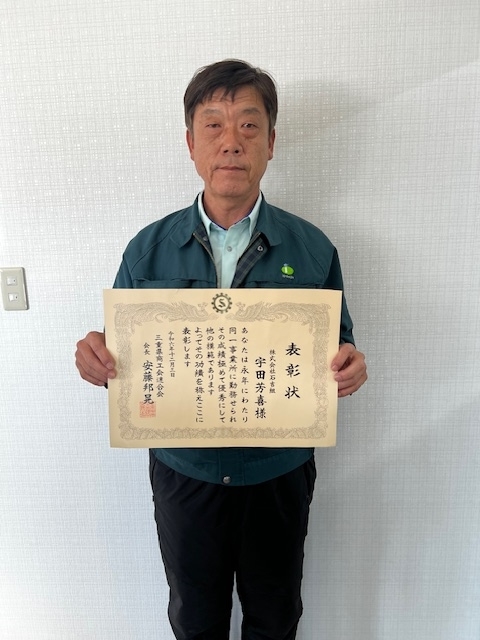 表彰状
株式会社石吉組
宇田芳喜様
あなたは永年にわたり
同一事業所に勤務せられ
その成績極めて優秀にして
他の模範であります
よってその功績を称えここに
表彰します
令和六年十二月二日
三重県商工会連合会
会長 安藤邦晃